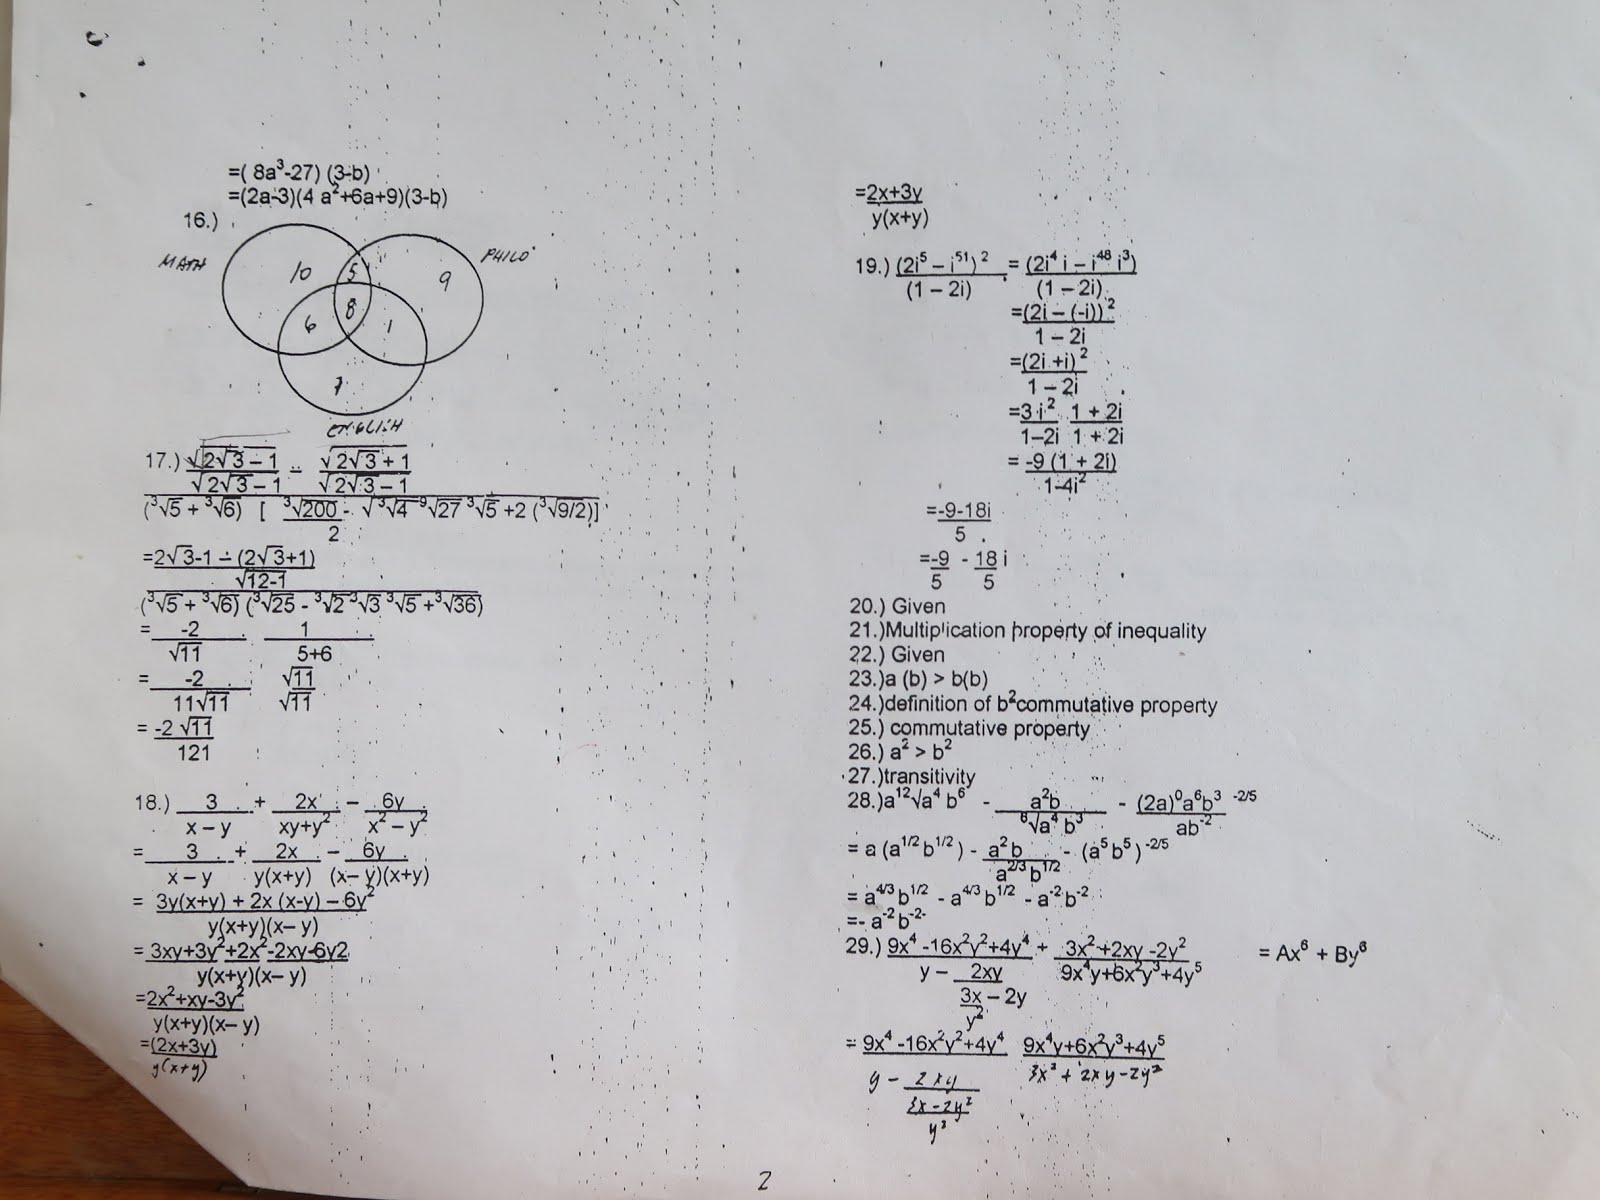 =( 8a³-27) (3-b)
=(2a-3)(4 a²+6a+9)(3-b)
16.)
MATH
PHILO
10 5 9
8
6 1
7
ENGLISH
17.) √2√3 – 1 – √2√3 + 1
√2√3 – 1 √2√3 – 1
(³√5 + ³√6) [ ³√200 - √³√4 ⁹√27 ³√5 +2 (³√9/2)]
2
=2√3-1 – (2√3+1)
√12-1
(³√5 + ³√6) (³√25 - ³√2 ³√3 ³√5 + ³√36)
= -2 1
√11 5+6
= -2 √11
11√11 √11
= -2 √11
121
18.) 3 + 2x – 6y
x – y xy+y² x² – y²
= 3 + 2x – 6y
x – y y(x+y) (x– y)(x+y)
= 3y(x+y) + 2x (x-y) – 6y²
y(x+y)(x– y)
= 3xy+3y²+2x²-2xy-6y2
y(x+y)(x– y)
=2x²+xy-3y²
y(x+y)(x– y)
=(2x+3y)
y(x+y)
=2x+3y
y(x+y)
19.) (2i⁵ – i⁵¹) ² = (2i⁴ i – i⁴⁸ i³)
(1 – 2i) (1 – 2i)
=(2i – (-i)) ²
1 – 2i
=(2i +i) ²
1 – 2i
=3 i² 1 + 2i
1–2i 1 + 2i
= -9 (1 + 2i)
1-4i²
=-9-18i
5
=-9 - 18 i
5 5
20.) Given
21.)Multiplication property of inequality
22.) Given
23.)a (b) > b(b)
24.)definition of b²commutative property
25.) commutative property
26.) a² > b²
27.)transitivity
28.)a¹²√a⁴ b⁶ - a²b - (2a)⁰a⁶b³ -2/5
⁶√a⁴ b³ ab⁻²
= a (a¹/² b¹/²) - a² b - (a⁵ b⁵) ⁻²/⁵
a²/³ b¹/²
= a⁴/³ b¹/² - a⁴/³ b¹/² - a⁻² b⁻²
=- a⁻² b⁻²
29.) 9x⁴ -16x²y²+4y⁴ + 3x²+2xy -2y² = Ax⁶ + By⁶
y – 2xy 9x⁴y+6x²y³+4y⁵
3x – 2y
y²
= 9x⁴ -16x²y²+4y⁴ 9x⁴y+6x²y³+4y⁵
y – 2xy 3x² + 2xy – 2y²
3x – 2y²
y²
2